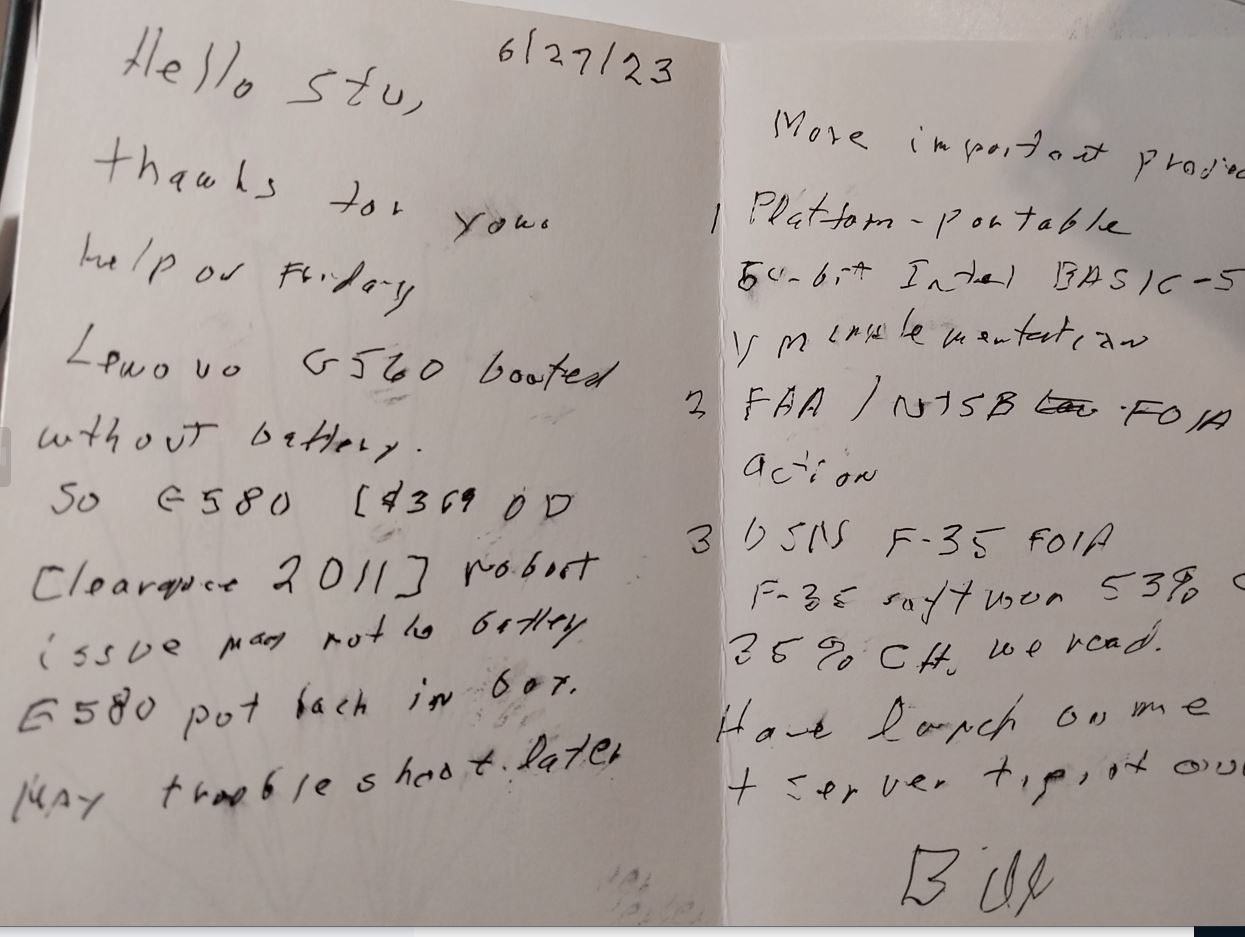 6/27/23
Hello Stu,
thanks for your
help on Friday
Lenovo G560 booted
without battery.
So G580 [$369 OD
Clearance 2011] noboot
issue may not be battery
G580 put back in box.
May trouble shoot later
More important
1 Platform-portable
64-bit Intel BASIC-5
implementation
2 FAA / NTSB FOIA
action
3 F-35 FOIA
F-35 software 53%
35% C++, we read.
Have lunch on me
+ server tip, it
Bill